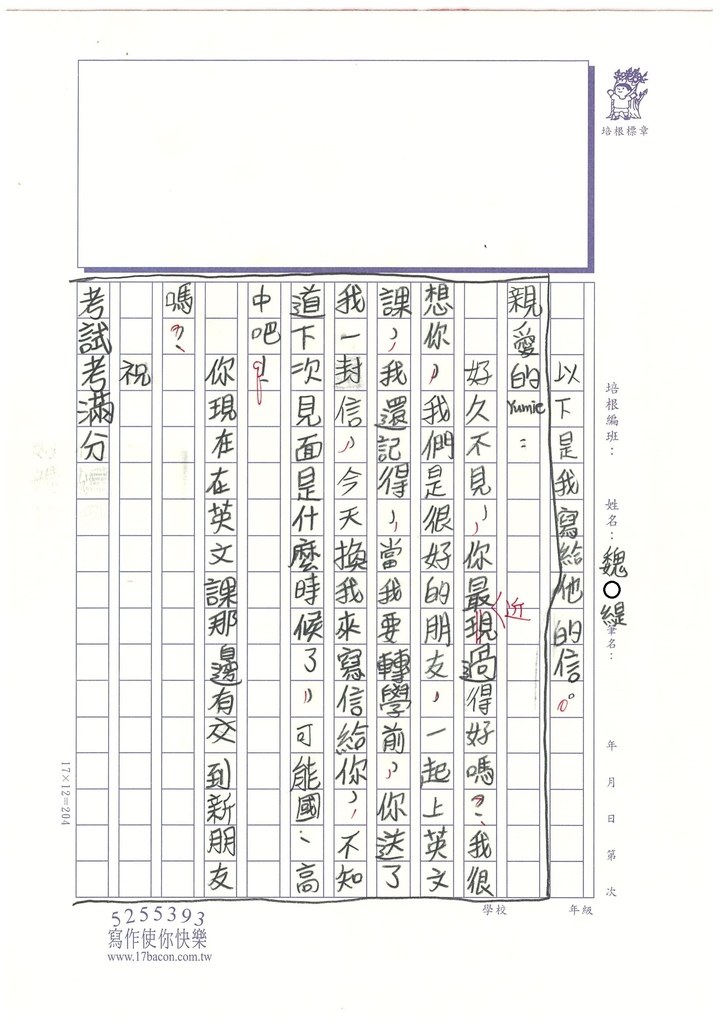 培根標章
培根編班：
姓名：魏〇緹
筆名：
年 月 日 第 次
年級
學校
以下是我寫給他的信。
親愛的Yumie：
好久不見，你最現過得好嗎？我很
近
想你，我們是很好的朋友，一起上英文
課，我還記得，當我要轉學前，你送了
我一封信，今天換我來寫信給你，不知
道下次見面是什麼時候了，可能國、高
中吧！
你現在在英文課那邊有交到新朋友
嗎？
祝
考試考滿分
17×12=204
5255393
寫作使你快樂
www.17bacon.com.tw